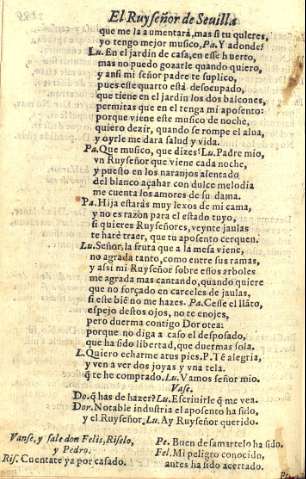 El Ruyseñor de Seuilla
que me la aumentarà, mas si tu quieres,
yo tengo mejor musico, Pa. Y adonde?
Lu. En el jardin de casa, en esse huerto,
mas no puedo gozarle quando quiero,
y ansi mi señor padre te suplico,
pues este quarto està desocupado,
que tiene en el jardin los dos balcones,
permitas que en el tenga mi aposento:
porque viene este musico de noche,
quiero dezir, quando se rompe el alua,
y oyrle me darà salud y vida.
Pa. Que musico, que dizes? Lu. Padre mio,
vn Ruyseñor que viene cada noche,
y puesto en los naranjos alentado
del blanco açahar con dulce melodia
me cuenta los amores de su dama.
Pa. Hija estaràs muy lexos de mi cama,
y no es razon para el estado tuyo,
si quieres Ruyseñores, veynte jaulas
te harè traer, que tu aposento cerquen.
Lu. Señor, la fruta que a la mesa viene,
no agrada tanto, como entre sus ramas,
y assi mi Ruyseñor sobre essos arboles
me agrada mas cantando, quando quiere
que no forçado en carceles de jaulas,
si este biẽ no me hazes. Pa. Cesse el llãto,
espejo destos ojos, no te enojes,
pero duerma contigo Dorotea:
porque no diga a caso el desposado,
que ha sido libertad, que duermas sola.
L. Quiero echarme a tus pies. P. Tẽ alegria,
y ven a ver dos joyas y vna tela.
q̃ te he comprado. Lu. Vamos señor mio.
Vase.
Do. q̃ has de hazer? Lu. Escriuirle q̃ me vea.
Dor. Notable industria el aposento ha sido,
y el Ruyseñor, Lu. Ay Ruyseñor querido.
Vanse, y sale don Felis, Riselo,
y Pedro.
Ris. Cuentate ya por casado.
Pe. Buen desamartelo ha sido.
Fel. Mi peligro conocido,
antes ha sido acertado.